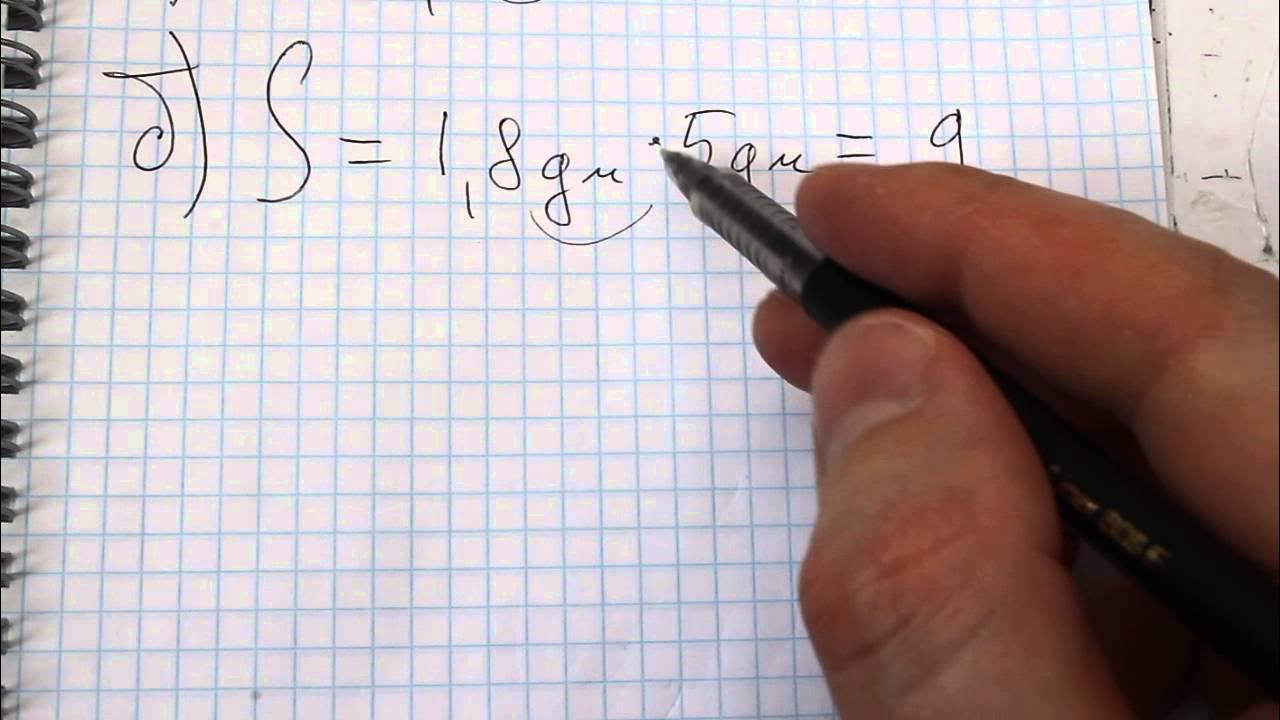 б) S = 1,8 дм · 5 дм = 9